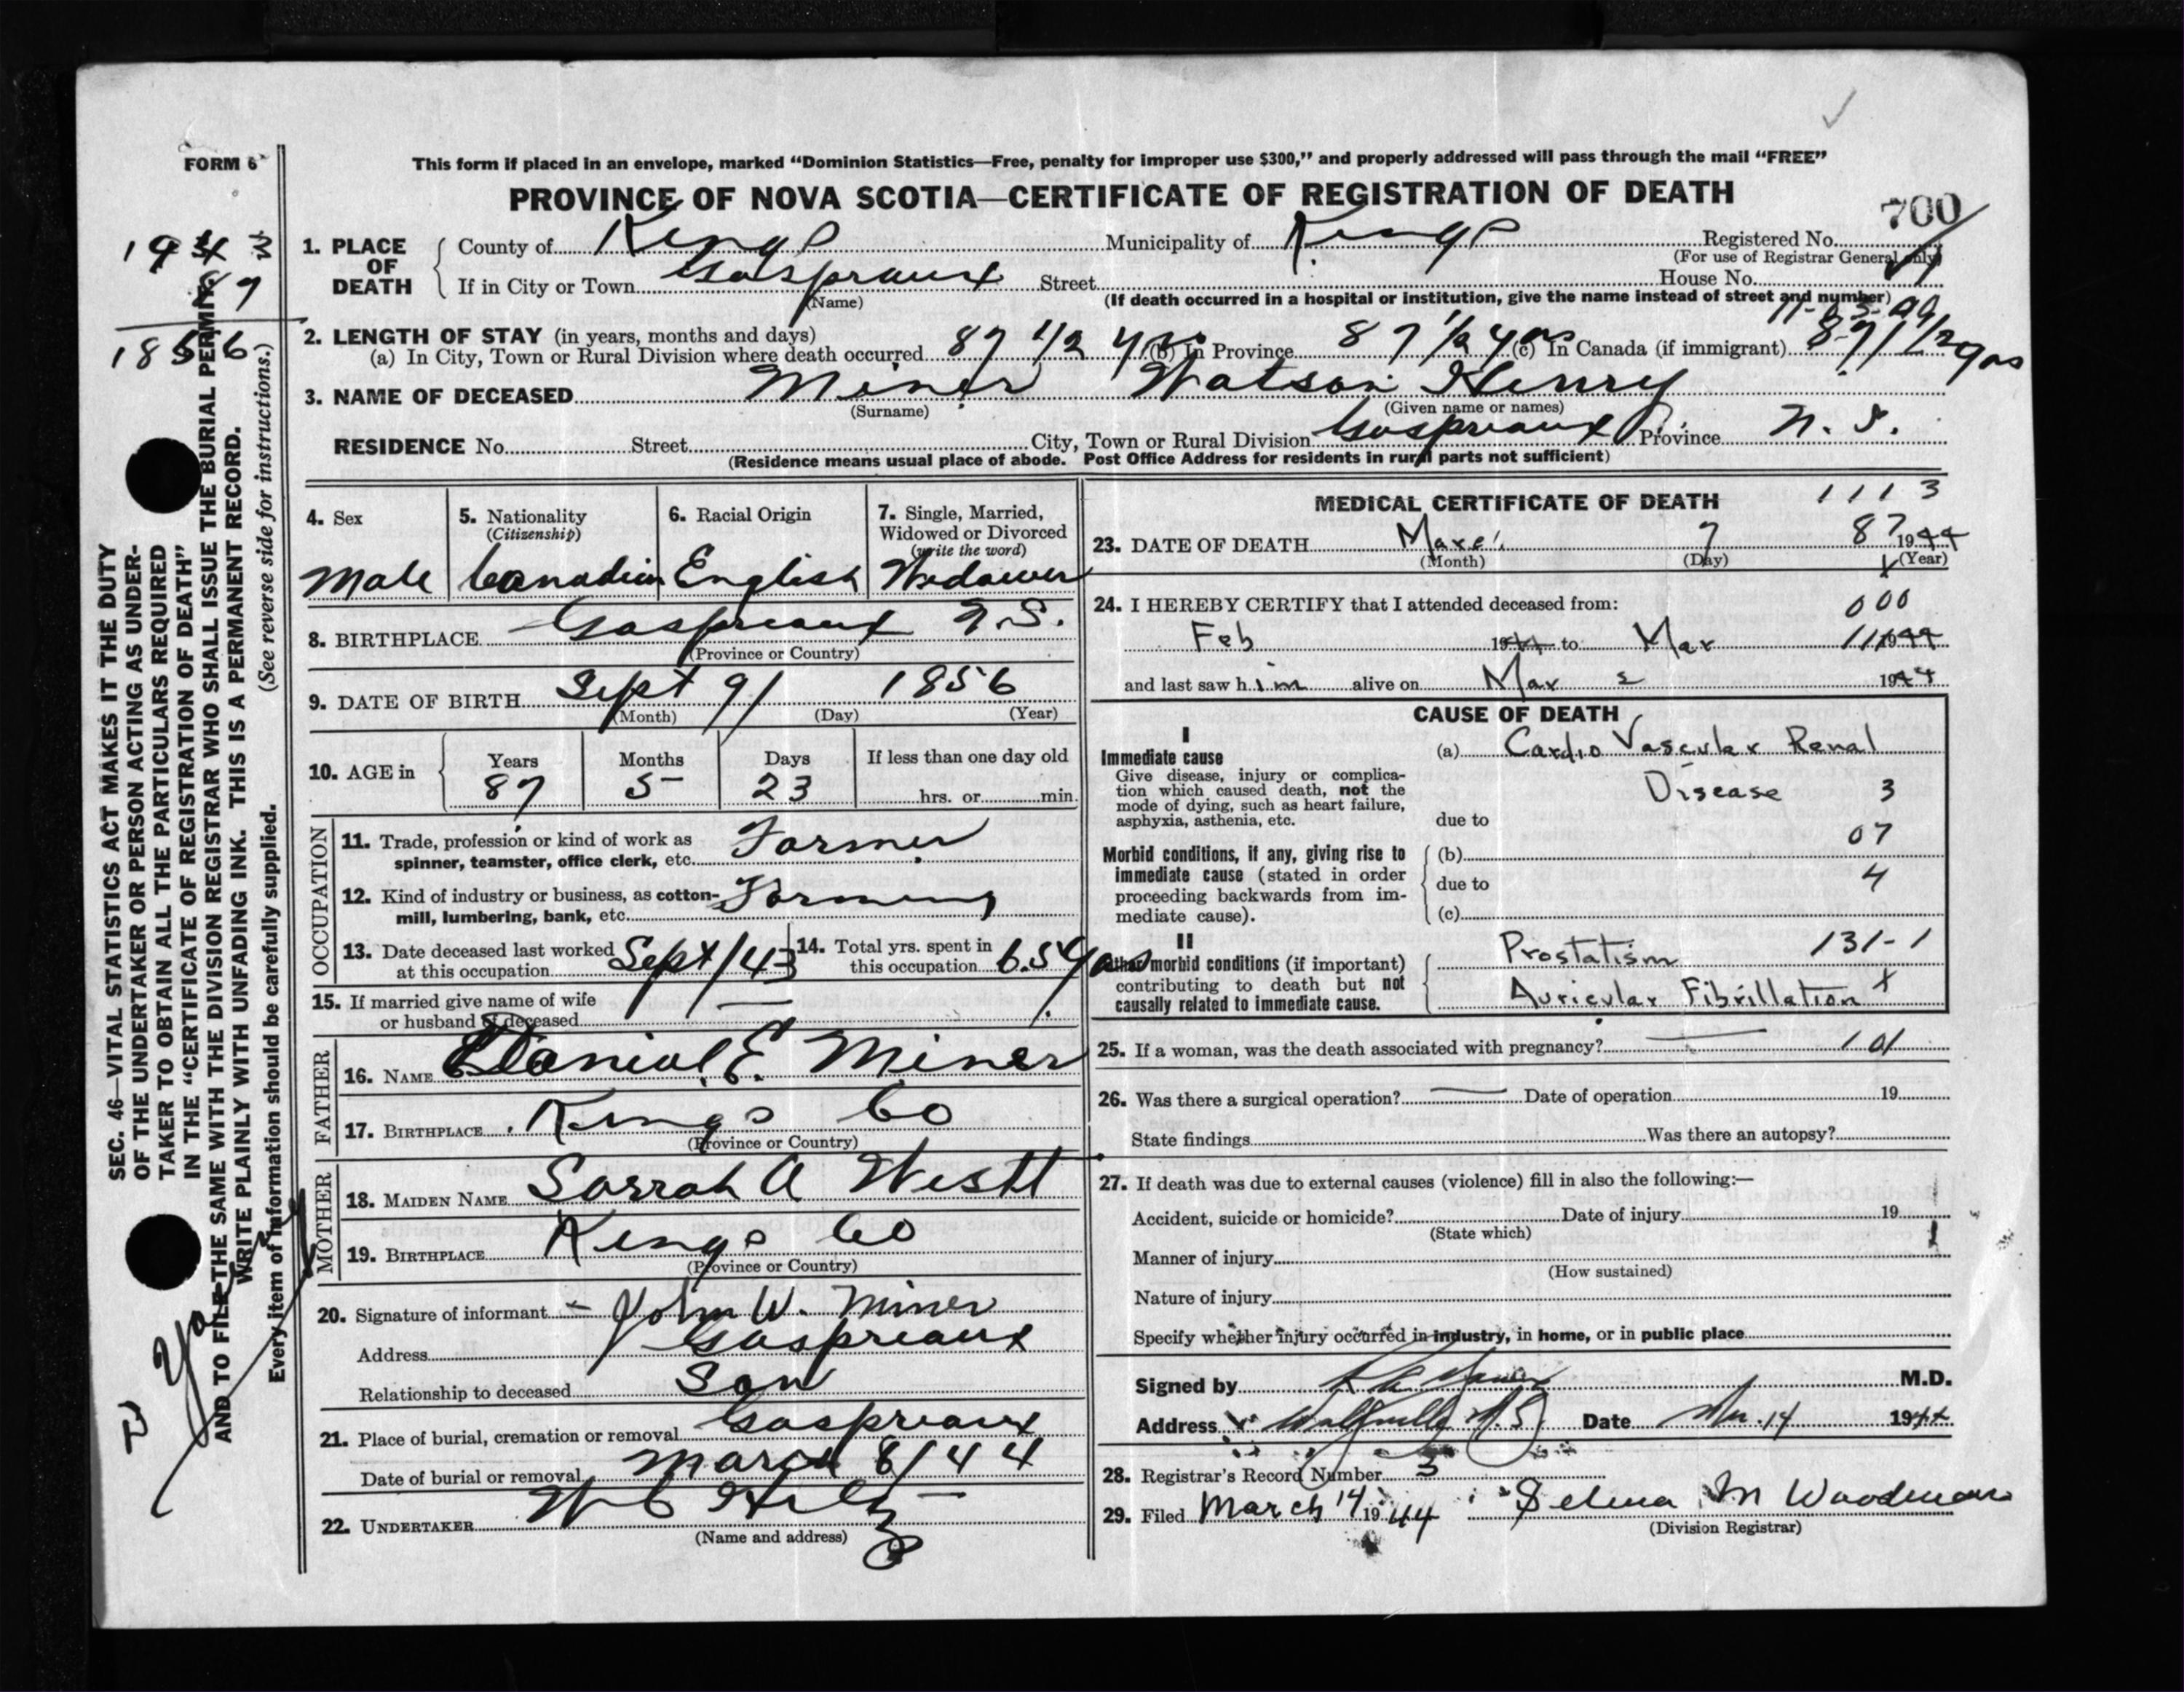 FORM 6
This form if placed in an envelope, marked “Dominion Statistics—Free, penalty for improper use $300,” and properly addressed will pass through the mail “FREE”
PROVINCE OF NOVA SCOTIA—CERTIFICATE OF REGISTRATION OF DEATH
700
1. PLACE OF DEATH
County of Kings Municipality of Kings Registered No.
(For use of Registrar General only)
If in City or Town Gaspreaux Street House No.
(Name) (If death occurred in a hospital or institution, give the name instead of street and number)
2. LENGTH OF STAY (in years, months and days)
(a) In City, Town or Rural Division where death occurred 87 1/2 yrs (b) In Province 87 1/2 yrs (c) In Canada (if immigrant) 87 1/2 yrs
3. NAME OF DECEASED Miner Watson Henry
(Surname) (Given name or names)
RESIDENCE No. Street City, Town or Rural Division Gaspreaux Province N. S.
(Residence means usual place of abode. Post Office Address for residents in rural parts not sufficient)
4. Sex 5. Nationality (Citizenship) 6. Racial Origin 7. Single, Married, Widowed or Divorced (write the word)
Male Canadian English Widower
8. BIRTHPLACE Gaspreaux N.S.
(Province or Country)
9. DATE OF BIRTH Sept 9/ 1856
(Month) (Day) (Year)
10. AGE in Years Months Days If less than one day old
87 5 23 hrs. or min.
OCCUPATION
11. Trade, profession or kind of work as
spinner, teamster, office clerk, etc. Farmer
12. Kind of industry or business, as cotton-
mill, lumbering, bank, etc. Farming
13. Date deceased last worked
at this occupation Sept/43
14. Total yrs. spent in
this occupation 65 yrs
15. If married give name of wife
or husband of deceased
FATHER
16. NAME Danial E. Miner
17. BIRTHPLACE Kings Co
(Province or Country)
MOTHER
18. MAIDEN NAME Sarrah A West
19. BIRTHPLACE Kings Co
(Province or Country)
20. Signature of informant John W. Miner
Address Gaspreaux
Relationship to deceased Son
21. Place of burial, cremation or removal Gaspreaux
Date of burial or removal March 8/44
22. UNDERTAKER
(Name and address)
MEDICAL CERTIFICATE OF DEATH 1113
23. DATE OF DEATH March 7 87 1944
(Month) (Day) (Year)
24. I HEREBY CERTIFY that I attended deceased from: 000
Feb 1944 to Mar 1944
and last saw him alive on Mar 2 1944
CAUSE OF DEATH
I
Immediate cause
Give disease, injury or complica-
tion which caused death, not the
mode of dying, such as heart failure,
asphyxia, asthenia, etc.
(a) Cardio Vascular Renal
Disease 3
due to
07
Morbid conditions, if any, giving rise to
immediate cause (stated in order
proceeding backwards from im-
mediate cause).
(b)
due to 4
(c)
II
Other morbid conditions (if important)
contributing to death but not
causally related to immediate cause.
Prostatism 131-1
Auricular Fibrillation x
25. If a woman, was the death associated with pregnancy? 101
26. Was there a surgical operation? Date of operation 19
State findings Was there an autopsy?
27. If death was due to external causes (violence) fill in also the following:—
Accident, suicide or homicide? Date of injury 19
(State which)
Manner of injury 1
(How sustained)
Nature of injury
Specify whether injury occurred in industry, in home, or in public place
Signed by M.D.
Address Wolfville N.S. Date Mar. 14 1944
28. Registrar's Record Number 3
29. Filed March 14 1944 Selma M Woodman
(Division Registrar)
SEC. 46—VITAL STATISTICS ACT MAKES IT THE DUTY
OF THE UNDERTAKER OR PERSON ACTING AS UNDER-
TAKER TO OBTAIN ALL THE PARTICULARS REQUIRED
IN THE “CERTIFICATE OF REGISTRATION OF DEATH”
AND TO FILE THE SAME WITH THE DIVISION REGISTRAR WHO SHALL ISSUE THE BURIAL PERMIT.
WRITE PLAINLY WITH UNFADING INK. THIS IS A PERMANENT RECORD.
Every item of information should be carefully supplied. (See reverse side for instructions.)
1856